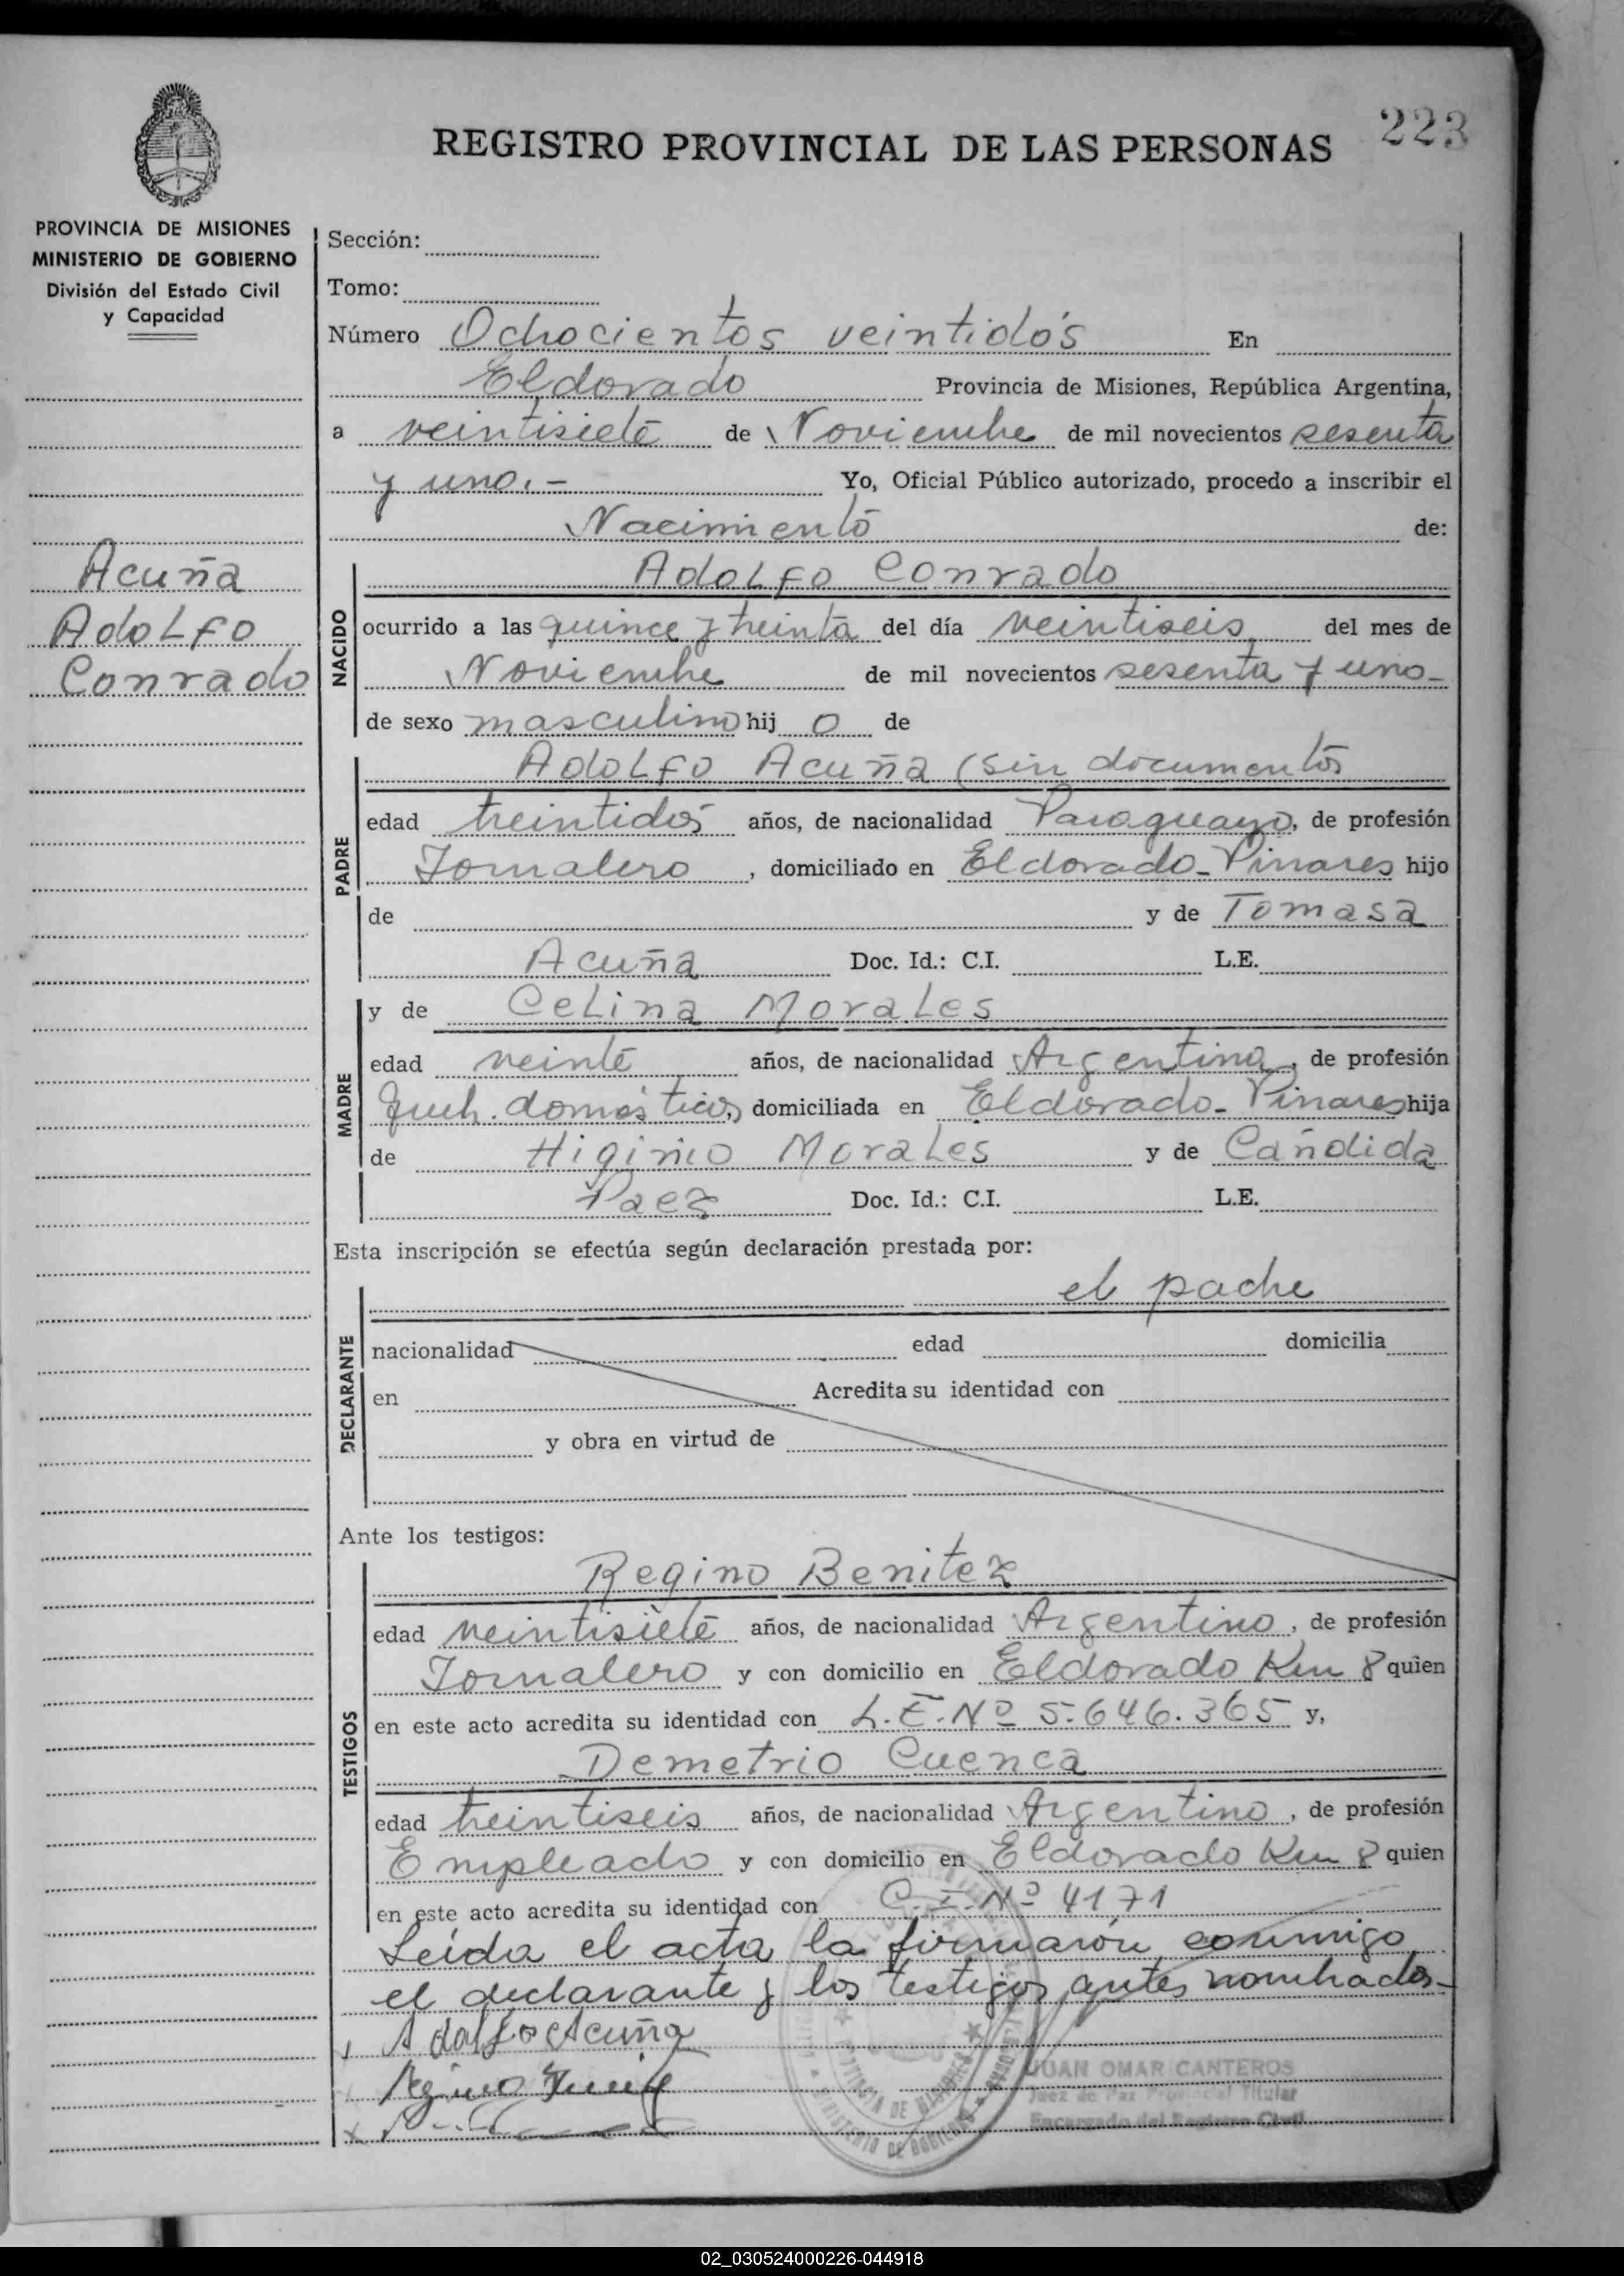 223
REGISTRO PROVINCIAL DE LAS PERSONAS
PROVINCIA DE MISIONES
MINISTERIO DE GOBIERNO
División del Estado Civil
y Capacidad
Acuña
Adolfo
Conrado
Sección:
Tomo:
Número Ochocientos veintidós En
Eldorado Provincia de Misiones, República Argentina,
a veintisiete de Noviembre de mil novecientos sesenta
y uno.- Yo, Oficial Público autorizado, procedo a inscribir el
Nacimiento de:
NACIDO
Adolfo Conrado
ocurrido a las quince y treinta del día veintiseis del mes de
Noviembre de mil novecientos sesenta y uno-
de sexo masculino hij o de
PADRE
Adolfo Acuña (sin documentos
edad treintidós años, de nacionalidad Paraguayo, de profesión
Jornalero, domiciliado en Eldorado-Pinares hijo
de y de Tomasa
Acuña Doc. Id.: C.I. L.E.
MADRE
y de Celina Morales
edad veinte años, de nacionalidad Argentina, de profesión
domésticos, domiciliada en Eldorado-Pinares hija
de Higinio Morales y de Cándida
Paez Doc. Id.: C.I. L.E.
Esta inscripción se efectúa según declaración prestada por:
DECLARANTE
el padre
nacionalidad edad domicilia
en Acredita su identidad con
y obra en virtud de
Ante los testigos:
TESTIGOS
Regino Benitez
edad veintisiete años, de nacionalidad Argentino, de profesión
Jornalero y con domicilio en Eldorado Km 8 quien
en este acto acredita su identidad con L.E. Nº 5.646.365 y,
Demetrio Cuenca
edad treintiseis años, de nacionalidad Argentino, de profesión
Empleado y con domicilio en Eldorado Km 8 quien
en este acto acredita su identidad con C.I. Nº 4171
Leida el acta la firmaron conmigo
el declarante y los testigos antes nombrados-
Adolfo Acuña
JUAN OMAR CANTEROS
Juez de Paz Provincial Titular
Encargado del Registro Civil
PROVINCIA DE MISIONES
MINISTERIO DE GOBIERNO
02_030524000226-044918